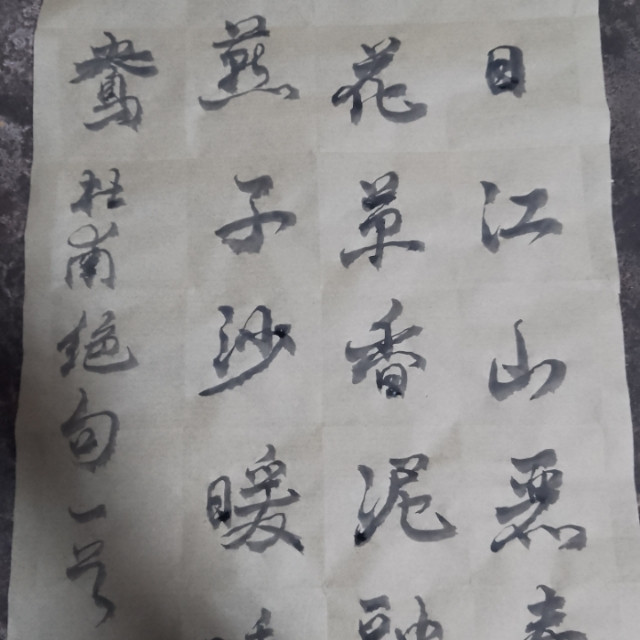 日江山丽春
花草香泥融
燕子沙暖
鴦
杜甫绝句一首